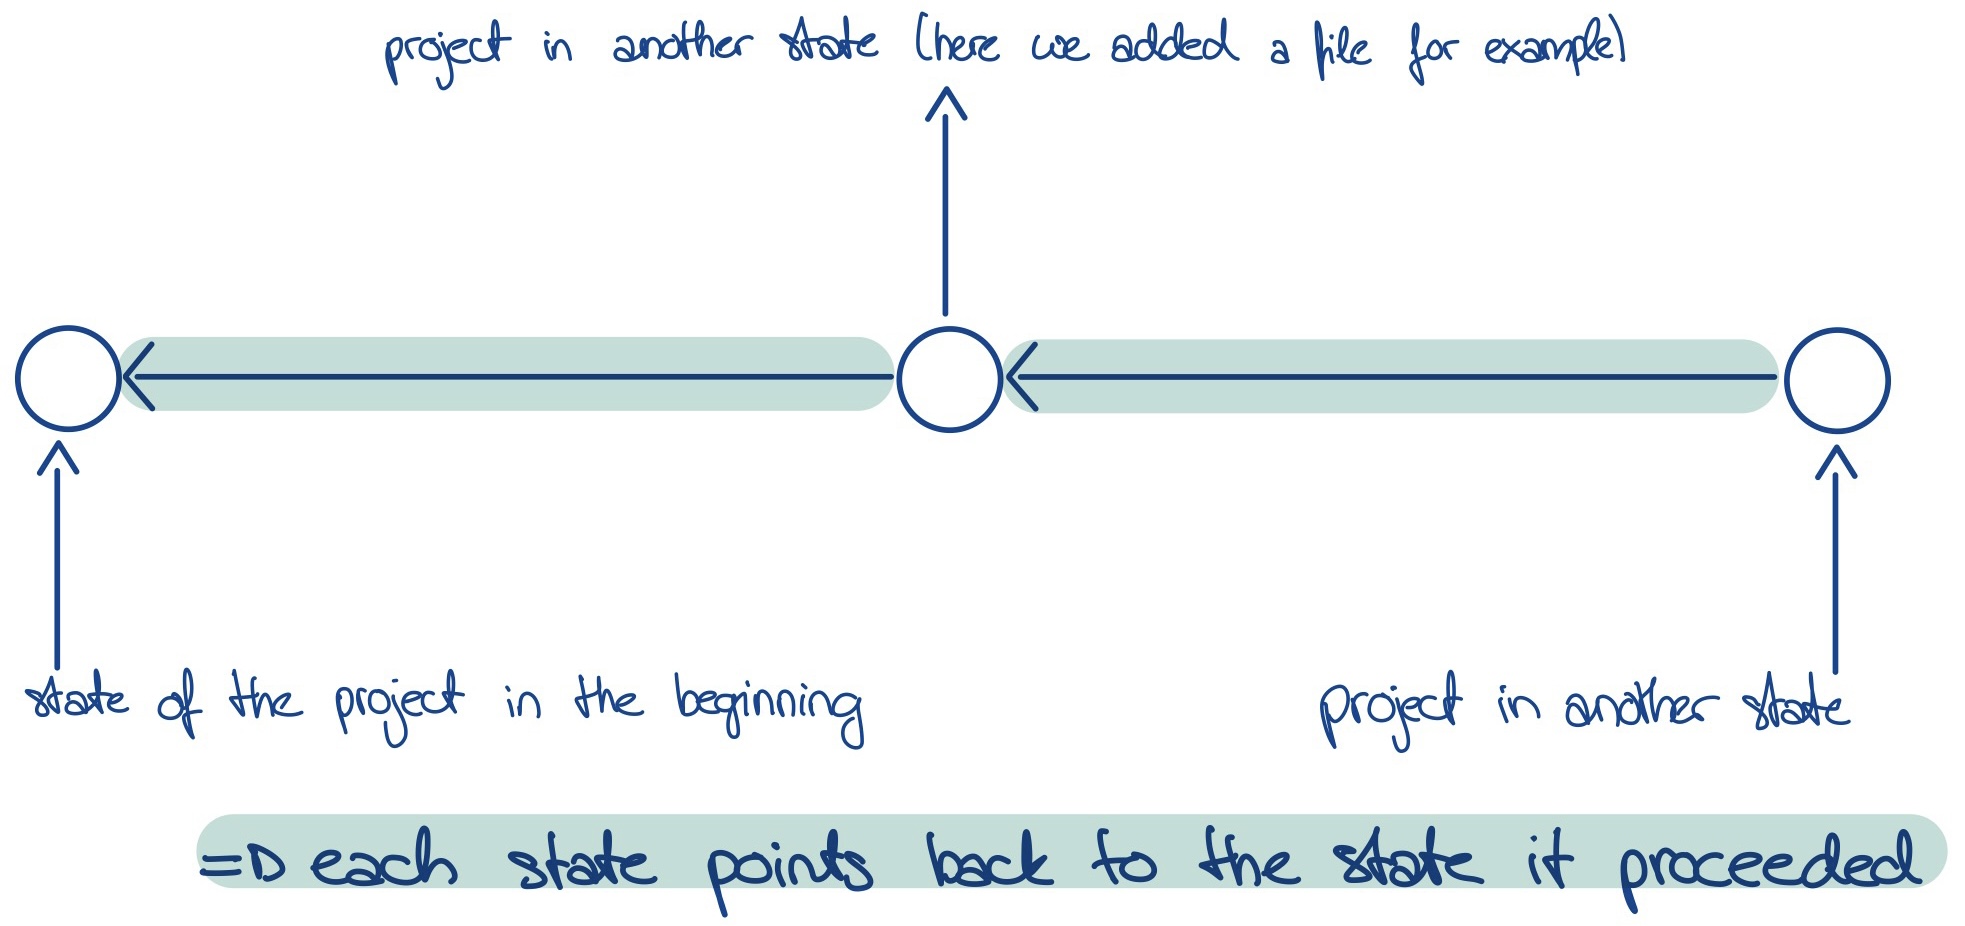 project in another state (here we added a file for example)
state of the project in the beginning
project in another state
=> each state points back to the state it proceeded